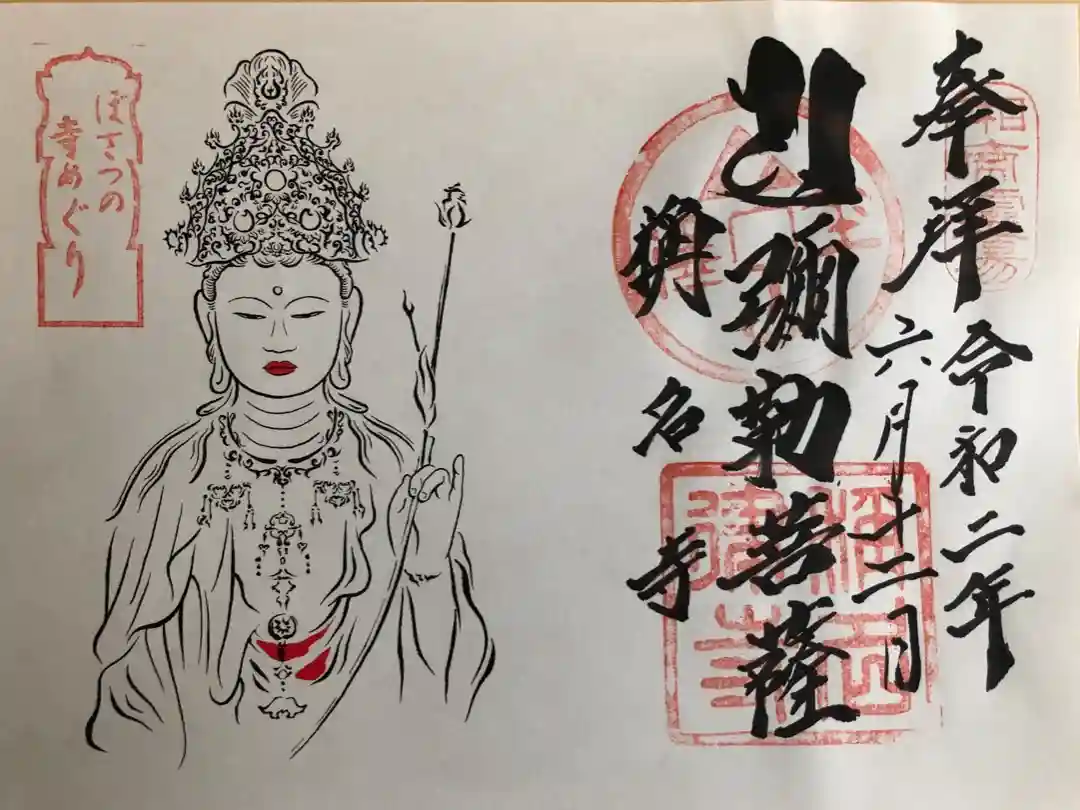 奉拝
令和二年
六月十二日
彌勒菩薩
稱名寺
ぼさつの
寺めぐり